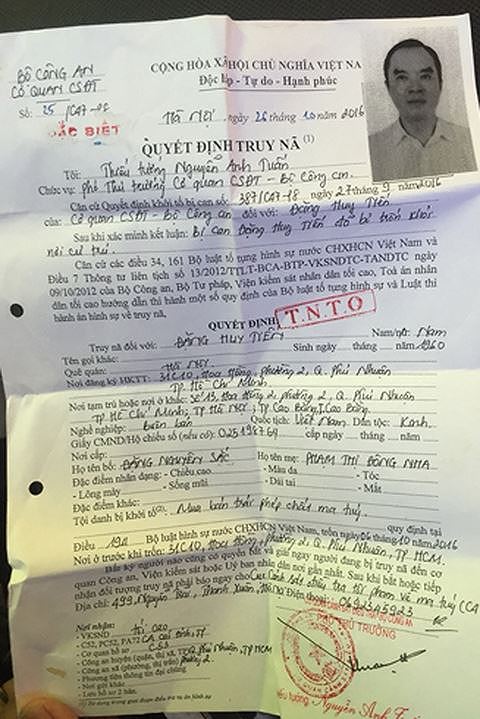 BỘ CÔNG AN
CƠ QUAN CSĐT
CỘNG HÒA XÃ HỘI CHỦ NGHĨA VIỆT NA
Độc lập - Tự do - Hạnh phúc
Số: 25 /C47-P8
ĐẶC BIỆT
Hà Nội, ngày 26 tháng 10 năm 2016
QUYẾT ĐỊNH TRUY NÃ (1)
Tôi: Thiếu tướng Nguyễn Anh Tuấn
Chức vụ: phó Thủ trưởng Cơ quan CSĐT - Bộ Công an.
Căn cứ Quyết định khởi tố bị can số: 387/C47-P8 ngày 27 tháng 9 năm 2016
của: Cơ quan CSĐT - Bộ Công an đối với: Đặng Huy Tiến
Sau khi xác minh kết luận: bị can Đặng Huy Tiến đã bỏ trốn khỏi
nơi cư trú.
Căn cứ các điều 34, 161 Bộ luật tố tụng hình sự nước CHXHCN Việt Nam và
Điều 7 Thông tư liên tịch số 13/2012/TTLT-BCA-BTP-VKSNDTC-TANDTC ngày
09/10/2012 của Bộ Công an, Bộ Tư pháp, Viện kiểm sát nhân dân tối cao, Toà án nhân
dân tối cao hướng dẫn thi hành một số quy định của Bộ luật tố tụng hình sự và Luật thi
hành án hình sự về truy nã,
QUYẾT ĐỊNH:
T.N.T.O
Truy nã đối với: ĐẶNG HUY TIẾN Nam/nữ: Nam
Tên gọi khác: Sinh ngày tháng năm 1960
Quê quán: Hà Nội
Nơi đăng ký HKTT: 31C10, Hoa Hồng, phường 2, Q. Phú Nhuận,
TP Hồ Chí Minh
Nơi tạm trú hoặc nơi ở khác: Số 13, Hoa Hồng, phường 2, Q. Phú Nhuận
TP Hồ Chí Minh; TP Hà Nội; TP Cao Bằng, T. Cao Bằng.
Nghề nghiệp: buôn bán Quốc tịch: Việt Nam Dân tộc: Kinh
Giấy CMND/Hộ chiếu số (nếu có): cấp ngày tháng năm
Nơi cấp:
Họ tên bố: ĐẶNG NGUYÊN SẮC Họ tên mẹ: PHẠM THỊ ĐÔNG NHA
Đặc điểm nhân dạng: - Chiều cao - Màu da - Tóc
- Lông mày - Sống mũi - Dái tai - Mắt
Đặc điểm khác:
Tội danh bị khởi tố(2): Mua bán trái phép chất ma tuý. quy định tại
Điều 194 Bộ luật hình sự nước CHXHCN Việt Nam, trốn ngày 06 tháng 10 năm 2016
Nơi ở trước khi trốn: 31C10, Hoa Hồng, phường 2, Q. Phú Nhuận, TP HCM.
Bất kỳ người nào cũng có quyền bắt và giải ngay người đang bị truy nã đến cơ
quan Công an, Viện kiểm sát hoặc Uỷ ban nhân dân nơi gần nhất. Sau khi bắt hoặc tiếp
nhận đối tượng truy nã phải báo ngay cho Cục Cảnh sát điều tra tội phạm về ma tuý (C47)
Địa chỉ: 499, Nguyễn Trãi, Thanh Xuân, Hà Nội Điện thoại:
Nơi nhận:
- VKSND tối cao
- C52, PC52, PA72 CA các tỉnh, TP.
- Cơ quan hồ sơ C53
- Công an huyện (quận, thị xã, TP) Q. Phú Nhuận, TP HCM
- Công an xã (phường, thị trấn) phường 2.
- Phương tiện thông tin đại chúng
- Nơi gọi khác
- Lưu hồ sơ 2 bản.
PHÓ THỦ TRƯỞNG
Thiếu tướng Nguyễn Anh T